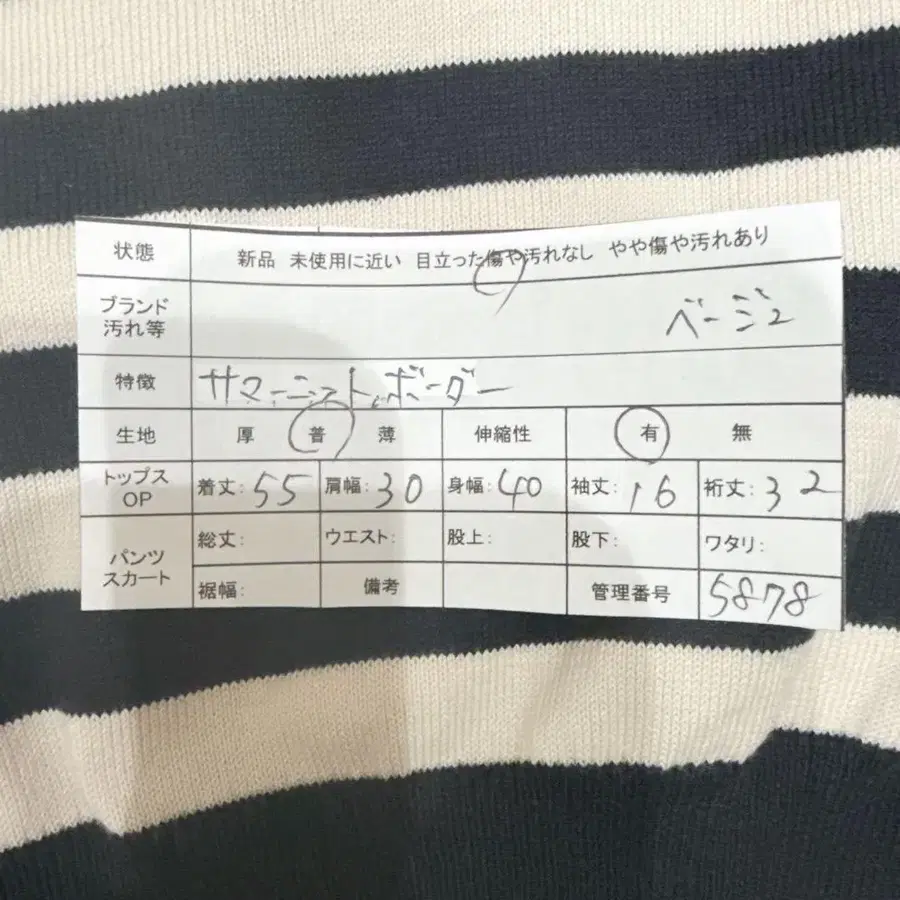 状態 新品 未使用に近い 目立った傷や汚れなし やや傷や汚れあり
ブランド
汚れ等 ベージュ
特徴 サマーニット、ボーダー
生地 厚 普 薄 伸縮性 有 無
トップス
OP 着丈: 55 肩幅: 30 身幅: 40 袖丈: 16 裄丈: 32
パンツ
スカート 総丈: ウエスト: 股上: 股下: ワタリ:
裾幅: 備考 管理番号 5878